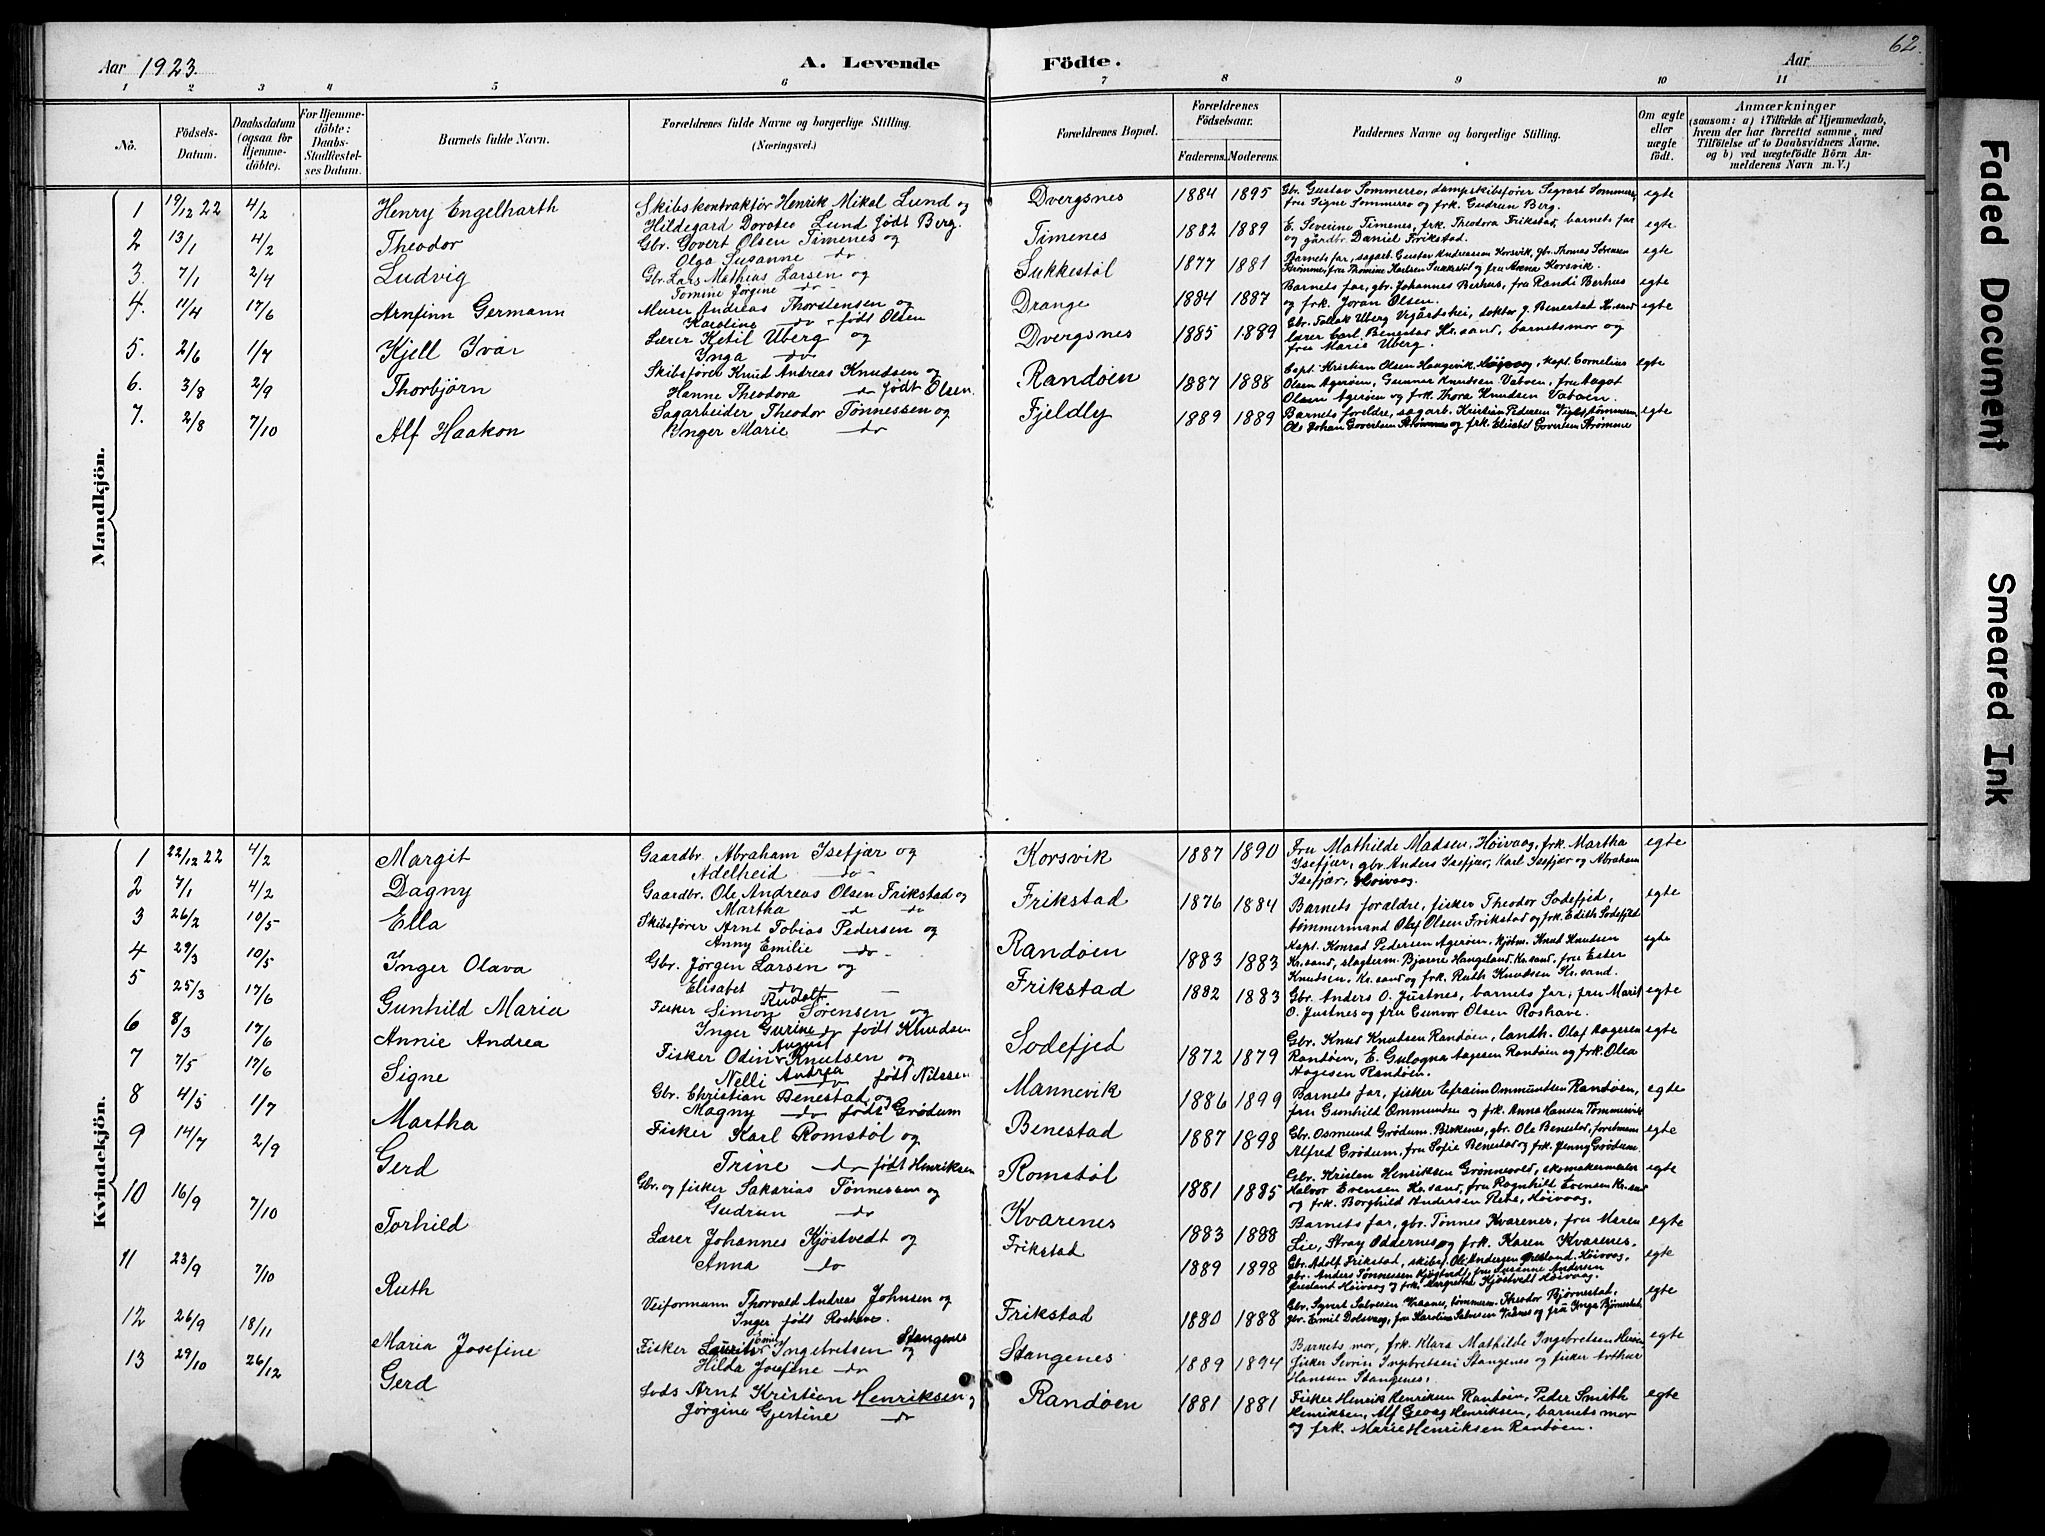 62.
Aar 1923. A. Levende Födte. Aar
1 2 3 4 5 6 7 8 9 10 11
No. Födsels-Datum. Daabsdatum (ogsaa for Hjemmedöbte). For Hjemmedöbte: Daabs-Stadfæstelses Datum. Barnets fulde Navn. Forældrenes fulde Navne og borgerlige Stilling. (Næringsvei.) Forældrenes Bopæl. Forældrenes Födselsaar. Faderens. Moderens. Faddernes Navne og borgerlige Stilling. Om ægte eller uægte födt. Anmærkninger (saasom: a) i Tilfælde af Hjemmedaab, hvem der har forrettet samme, med Tilföielse af to Daabsvidners Navne, og b) ved uægtefödte Börn Anmelderens Navn m. V.)
Mandkjön.
1 19/12 22 4/2 Henry Engelharth Skibskontraktör Henrik Mikal Lund og Hildegard Dorotea Lund født Berg. Dvergsnes 1884 1895 Gbr. Gustav Sommerro, dampskibsfører Sommerro, fru Signe Sommerro og frk. Gudrun Berg. egte
2 13/1 4/2 Theodor Gbr. Govert Olsen Timenes og Olga Susanne do. Timenes 1882 1889 E. Severine Timenes, frk. Theodora Frikstad, barnets far og gårdbr. Daniel Frikstad. egte
3. 7/1 2/4 Ludvig Gbr. Lars Mathias Larsen og Tomine Jörgine do Sukkestöl 1877 1881 Barnets far, sagarb. Gustav Andreassen Korsvik, gbr. Thomas Sørensen Strømme, fru Thomine Sukkestöl og fru Anna Korsvik. egte
4. 11/4 17/6 Arnfinn Germann Murer Andreas Thorstensen og Karoline do født Olsen Drange 1884 1887 Barnets far, gbr. Johannes Berhus, fru Randi Berhus og frk. Joran Olsen. egte
5. 2/6 1/7 Kjell Ivar Lærer Ketil Uberg og Inga do Dvergsnes 1885 1889 Gbr. Uberg Vegårdshei, doktor J. Benestad Kr.sand, lærer Carl Benestad Kr.sand, barnets mor og fru Marie Uberg. egte
6. 3/8 2/9 Thorbjörn Skibsfører Knud Andreas Knudsen og Hanne Theodora do født Olsen Randøen 1887 1888 Capt. Kristian Olsen Høivaag, kapt. Cornelius Olsen Agerøen, Gunnar Knudsen Vaboen, fru Aagot Olsen Agerøen og frk. Thora Knudsen Vaboen. egte
7. 2/8 7/10 Alf Haakon Sagarbeider Theodor Tønnessen og Inger Marie do Fjeldly 1889 1889 Barnets foreldre, sagarb. Kristian Pedersen, Ole Johan Govertsen Strømme og frk. Elisabet Govertsen Strømme egte
Kvindekjön.
1 22/12 22 4/2 Margit Gaardbr. Abraham Isefjær og Adelheid do - Korsvik 1887 1890 Fru Mathilde Madsen, Høivaag, frk. Martha Isefjær, gbr. Anders Isefjær, Karl Isefjær og Abraham Isefjær, Høivaag. egte
2 7/1 4/2 Dagny Gaardbr. Ole Andreas Olsen Frikstad og Martha do do Frikstad 1876 1884 Barnets forældre, fisker Theodor Sodefjed, tømmermand Olaf Olsen Frikstad og frk. Edith Sodefjed egte
3 26/2 10/5 Ella Skibsfører Arnt Tobias Pedersen og Anny Emilie do- Randøen 1883 1883 Kapt. Konrad Pedersen Agerøen, Kjøbm. Knut Knudsen Kr.sand, slagterm. Bjarne Hangeland Kr.sand, fru Ester Knudsen, Kr.sand og frk. Ruth Knudsen Kr.sand. egte
4 29/3 10/5 Inger Olava Gbr. Jørgen Larsen og Elisabet do - Frikstad 1882 1883 Gbr. Anders O. Justnes, barnets far, fru Marit O. Justnes og fru Gunvor Olsen Roshave. egte
5 25/3 17/6 Gunhild Maria Fisker Simon Rudolf Sørensen og Inger Gurine do født Knudsen Sodefjed 1872 1879 Gbr. Knud Knudsen Randøen, landh. Olaf Aagesen Randøen, E. Gulogna Aagesen Randøen og frk. Olea Aagesen Randøen. egte
6 8/3 17/6 Annie Andrea Fisker Odin August Knutsen og Nelli Andrea do født Nilssen Mannevik 1886 1899 Barnets far, fisker Efraim Ommundsen Randøen, fru Gunhild Ommundsen og frk. Anna Hansen Tømmervik egte
7 7/5 17/6 Signe Gbr. Christian Benestad og Magny do født Grødum Benestad 1887 1898 Gbr. Osmund Grødum, Birkenes, gbr. Ole Benestad, formann Alfred Grødum, fru Sofie Benestad og frk. Jenny Grødum. egte
8 4/5 1/7 Martha Fisker Karl Romstøl og Trine do født Henriksen Romstøl 1881 1885 Gbr. Kristen Henriksen Grønnevold, skomakermester Halvor Evensen Kr.sand, fru Ragnhild Evensen Kr.sand og frk. Borghild Andersen, Høivaag. egte
9 14/7 2/9 Gerd Gbr. og fisker Sakarias Tønnessen og Gudrun do Kvarenes 1883 1888 Barnets far, gbr. Tønnes Kvarenes, fru Maren Lie, Stray Oddernes og frk. Karen Kvarenes. egte
10 16/9 7/10 Torhild Lærer Johannes Kjøstvedt og Anna do Frikstad 1889 1898 Gbr. Adolf Frikstad, skibsf. Ole Andersen Høivaag, gbr. Anders Tønnessen Kjøstvedt, fru Susanne Andersen Høivaag og frk. Margrethe Kjøstvedt Høivaag. egte
11 23/9 7/10 Ruth Veiformann Thorvald Andreas Johnsen og Inger født Roshave. Frikstad 1880 1888 Gbr. Syvert Salvesen, tømmerm. Theodor Bjørnestad, gbr. Emil Dolsvaag, fru Karoline Salvesen og fru Inga Bjørnestad. egte
12 26/9 18/11 Maria Josefine Fisker Laurits Emil Ingebretsen Stangenes og Hilda Josefine do Stangenes 1889 1894 Barnets mor, frk. Klara Mathilde Ingebretsen, fisker Severin Ingebretsen Stangenes og fisker Arthur Hansen Stangenes. egte
13 29/10 26/12 Gerd Lods Arnt Kristian Henriksen og Jørgine Gjertine do Randøen 1881 1881 Fisker Henrik Henriksen Randøen, Peder Smith Henriksen, Alf Georg Henriksen, barnets mor og frk. Marie Henriksen Randøen. egte
Faded Document
Smeared Ink